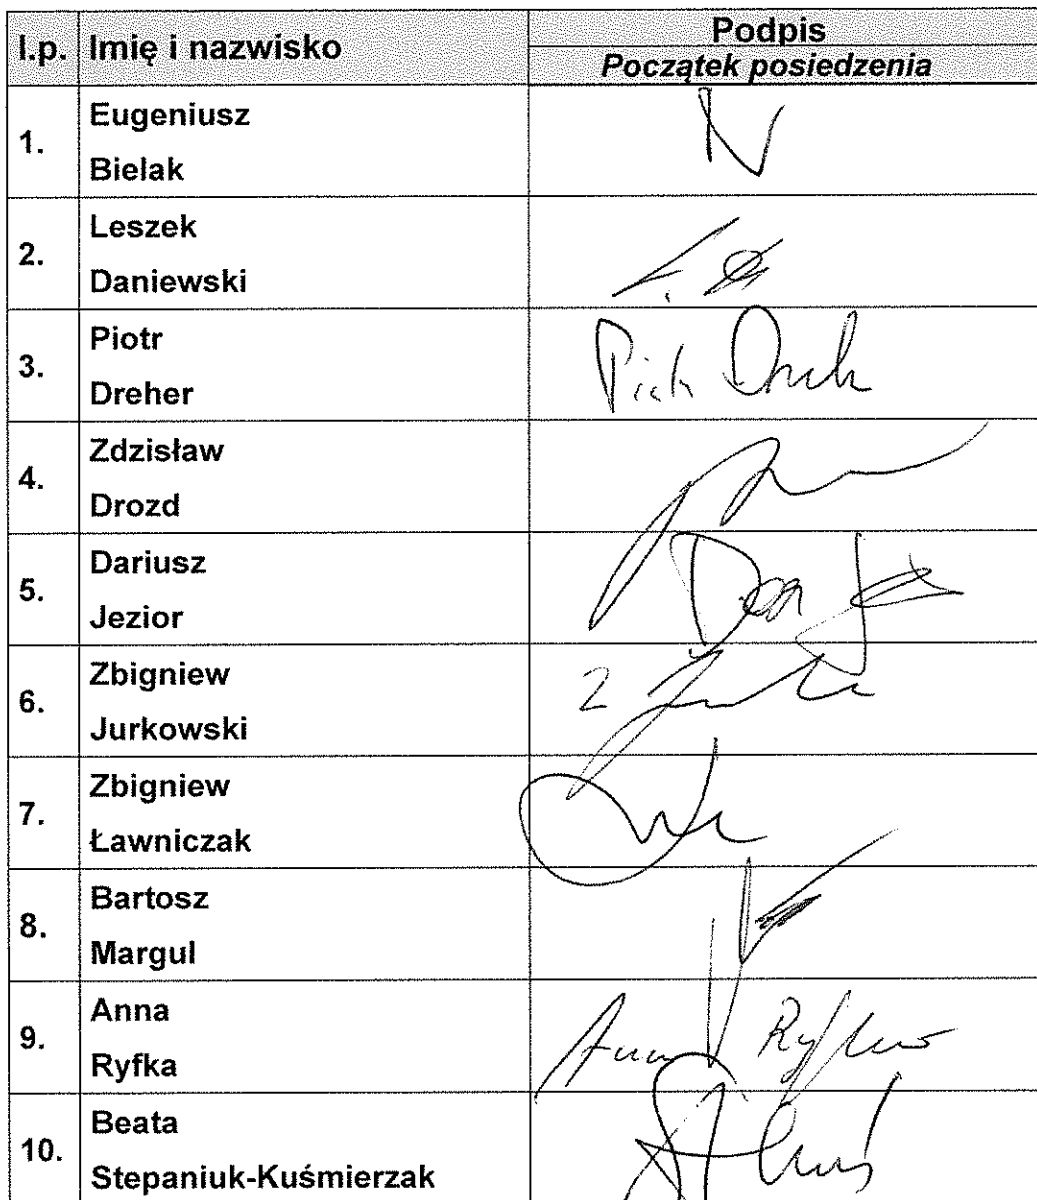 l.p. Imię i nazwisko Podpis
Początek posiedzenia
1. Eugeniusz
Bielak
2. Leszek
Daniewski
3. Piotr
Dreher
4. Zdzisław
Drozd
5. Dariusz
Jezior
6. Zbigniew
Jurkowski
7. Zbigniew
Ławniczak
8. Bartosz
Margul
9. Anna
Ryfka
Anna Ryfka
10. Beata
Stepaniuk-Kuśmierzak